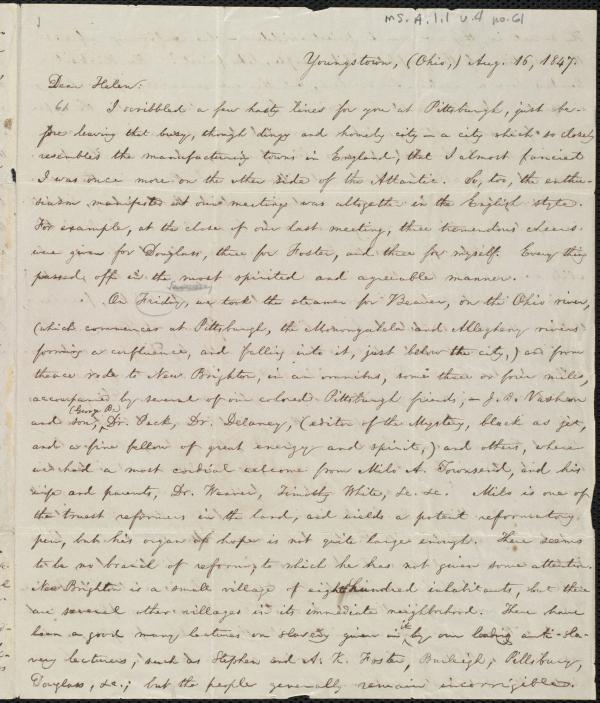 MS. A. 1.1 v. 4 no. 61
Youngstown, (Ohio,) Aug. 16, 1847.
Dear Helen:
61 I scribbled a few hasty lines for you at Pittsburgh, just be-
fore leaving that busy, though dingy and homely city — a city which so closely
resembles the manufacturing towns in England, that I almost fancied
I was once more on the other side of the Atlantic. So, too, the enthu-
siasm manifested at our meetings was altogether in the English style.
For example, at the close of our last meeting, three tremendous cheers
were given for Douglass, three for Foster, and three for myself. Every thing
passed off in the most spirited and agreeable manner.
Saturday
On Friday, we took the steamer for Beaver, on the Ohio river,
(which commences at Pittsburgh, the Monongahela and Allegheny rivers
forming a confluence, and falling into it, just below the city,) and from
thence rode to New Brighton, in an omnibus, some three or four miles,
accompanied by several of our colored Pittsburgh friends, — J. B. Vashon
and son, (George B.) Dr. Peck, Dr. Delaney, (editor of the Mystery, black as jet,
and a fine fellow of great energy and spirit,) and others, where
we had a most cordial welcome from Milo A. Townsend, and his
wife and parents, Dr. Weaver, Timothy White, &c. &c. Milo is one of
the truest reformers in the land, and wields a potent reformatory
pen, but his organ of hope is not quite large enough. There seems
to be no branch of reform to which he has not given some attention.
New Brighton is a small village of eight hundred inhabitants, but there
are several other villages in its immediate neighborhood. There have
been a good many lectures on slavery given in it, by our leading anti-sla-
very lecturers, such as Stephen and A. K. Foster, Burleigh, Pillsbury,
Douglass, &c.; but the people generally remain incorrigible.